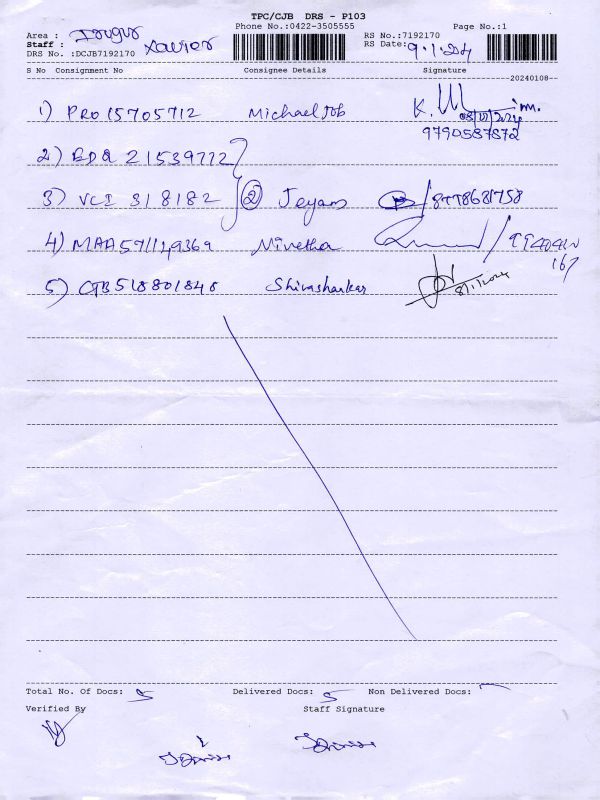 TPC/CJB DRS - P103
Phone No.:0422-3505555 Page No.:1
Area : Irugur
Staff : Xavier
RS No.:7192170
RS Date: 9.1.2024
DRS No. :DCJB7192170
S No Consignment No Consignee Details Signature
20240108
1) PRO15705712 Michael Job K.
08/01/2024
9790587872
2) 21539772
3) VCI 318182 (2) Jeyam /8778681758
4) MAA571149369 Nivetha
167
5) CTB518801848 Shivashankar 8/1/2024
Total No. Of Docs: 5 Delivered Docs: 5 Non Delivered Docs: -
Verified By Staff Signature